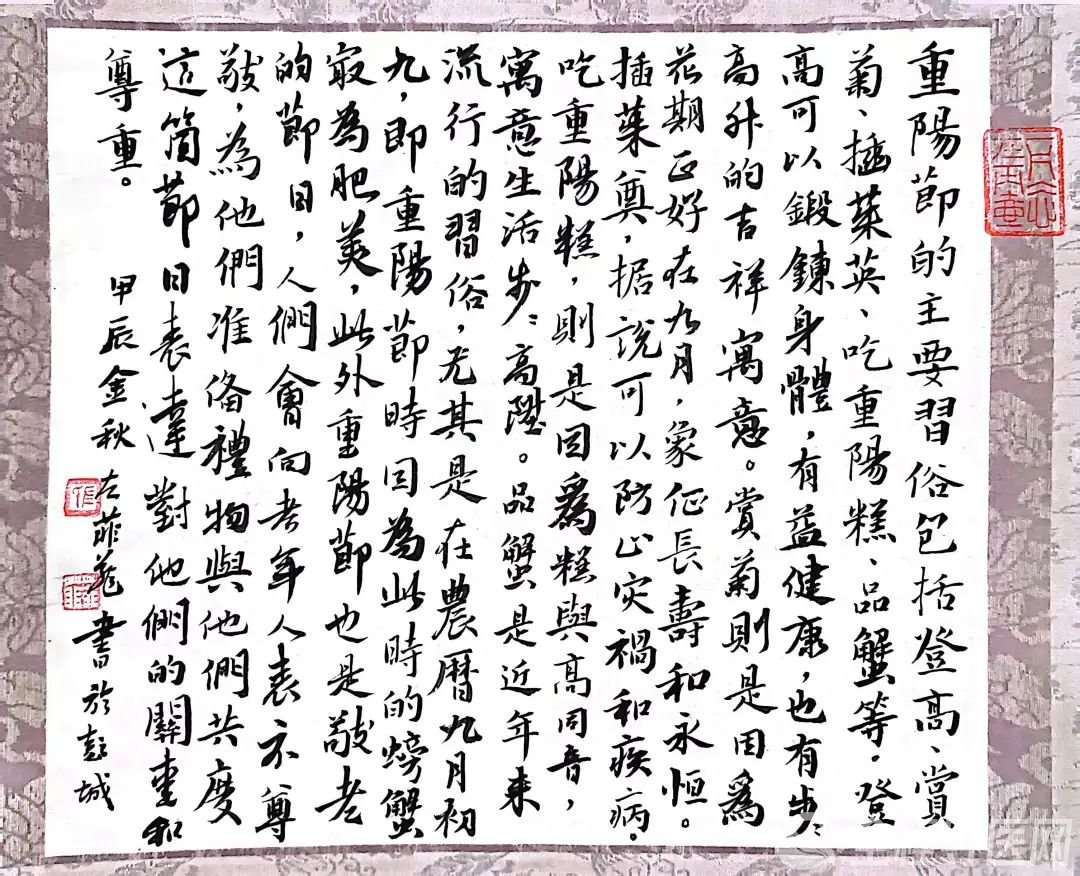 重陽節的主要習俗包括登高、賞
菊、插茱英、吃重陽糕、品蟹等。登
高可以鍛鍊身體，有益健康，也有步〻
高升的吉祥寓意。賞菊則是因爲
花期正好在九月，象征長壽和永恒。
插茱萸，据説可以防止灾禍和疾病。
吃重陽糕，則是因爲糕與高同音，
寓意生活步〻高陞。品蟹是近年来
流行的習俗，尤其是在農曆九月初
九，即重陽節時因為此時的螃蟹
最為肥美，此外重陽節也是敬老
的節日，人們會向老年人表示尊
敬，為他們准备禮物與他們共度
這箇節日表達對他們的關重和
尊重。
甲辰金秋 左菲苑書於彭城